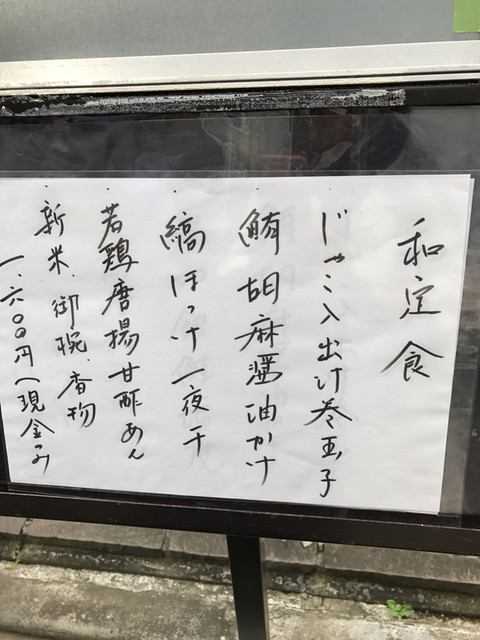 和定食
・じゃこ入出汁巻玉子
・鮪胡麻醤油かけ
・縞ほっけ一夜干
・若鶏唐揚甘酢あん
・新米、御椀、香物
一、六〇〇円(現金のみ